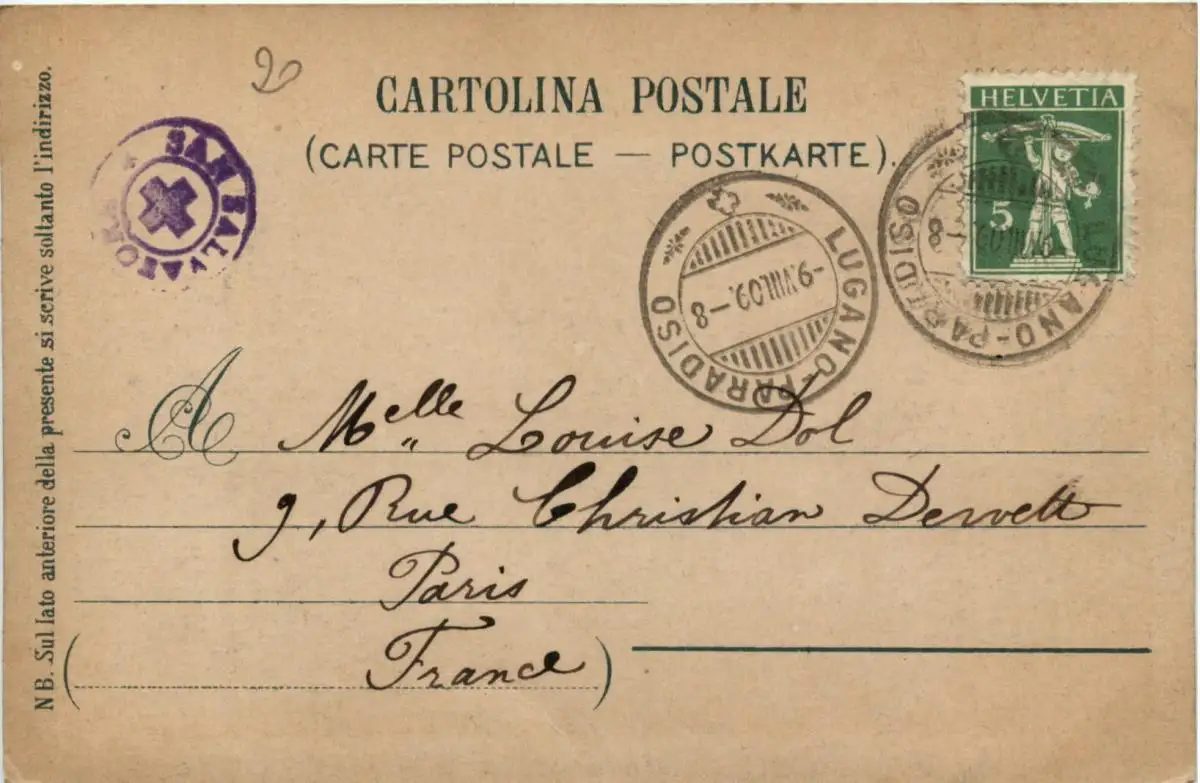 20
CARTOLINA POSTALE
(CARTE POSTALE — POSTKARTE).
HELVETIA
5
SAN SALVATORE
LUGANO-PARADISO
-9.VIII.09.-8
LUGANO-PARADISO
A Melle Louise Dol
9, Rue Christian Dewett
Paris
France
NB. Sul lato anteriore della presente si scrive soltanto l'indirizzo.